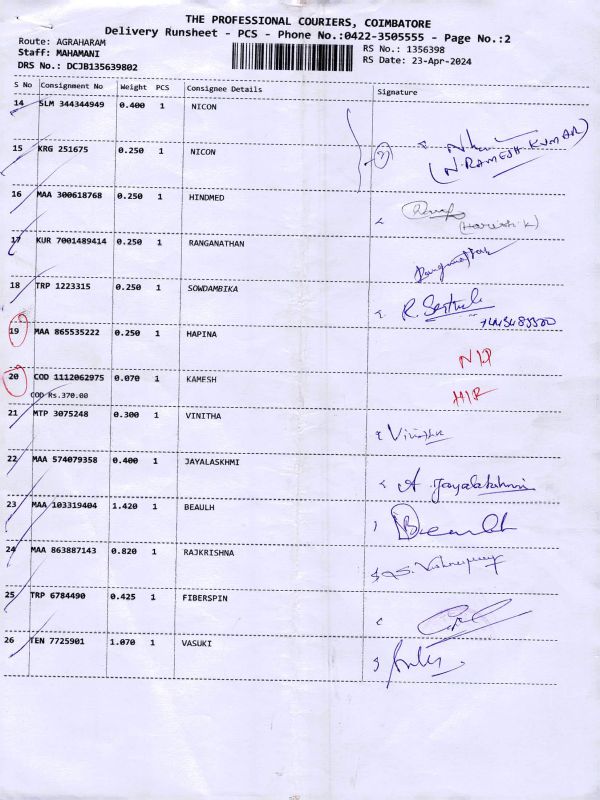 THE PROFESSIONAL COURIERS, COIMBATORE
Delivery Runsheet - PCS - Phone No.:0422-3505555 - Page No.:2
Route: AGRAHARAM RS No.: 1356398
Staff: MAHAMANI RS Date: 23-Apr-2024
DRS No.: DCJB135639802
S No Consignment No Weight PCS Consignee Details Signature
14 SLM 344344949 0.400 1 NICON
15 KRG 251675 0.250 1 NICON
(N. RAMESH KUMAR)
16 MAA 300618768 0.250 1 HINDMED
(Harish.K)
17 KUR 7001489414 0.250 1 RANGANATHAN
18 TRP 1223315 0.250 1 SOWDAMBIKA
19 MAA 865535222 0.250 1 HAPINA
20 COD 1112062975 0.070 1 KAMESH
COD Rs.370.00
21 MTP 3075248 0.300 1 VINITHA Vinitha
22 MAA 574079358 0.400 1 JAYALASKHMI A Jayalakshmi
23 MAA 103319404 1.420 1 BEAULH Beaulh
24 MAA 863887143 0.820 1 RAJKRISHNA
25 TRP 6784490 0.425 1 FIBERSPIN
26 TEN 7725901 1.070 1 VASUKI